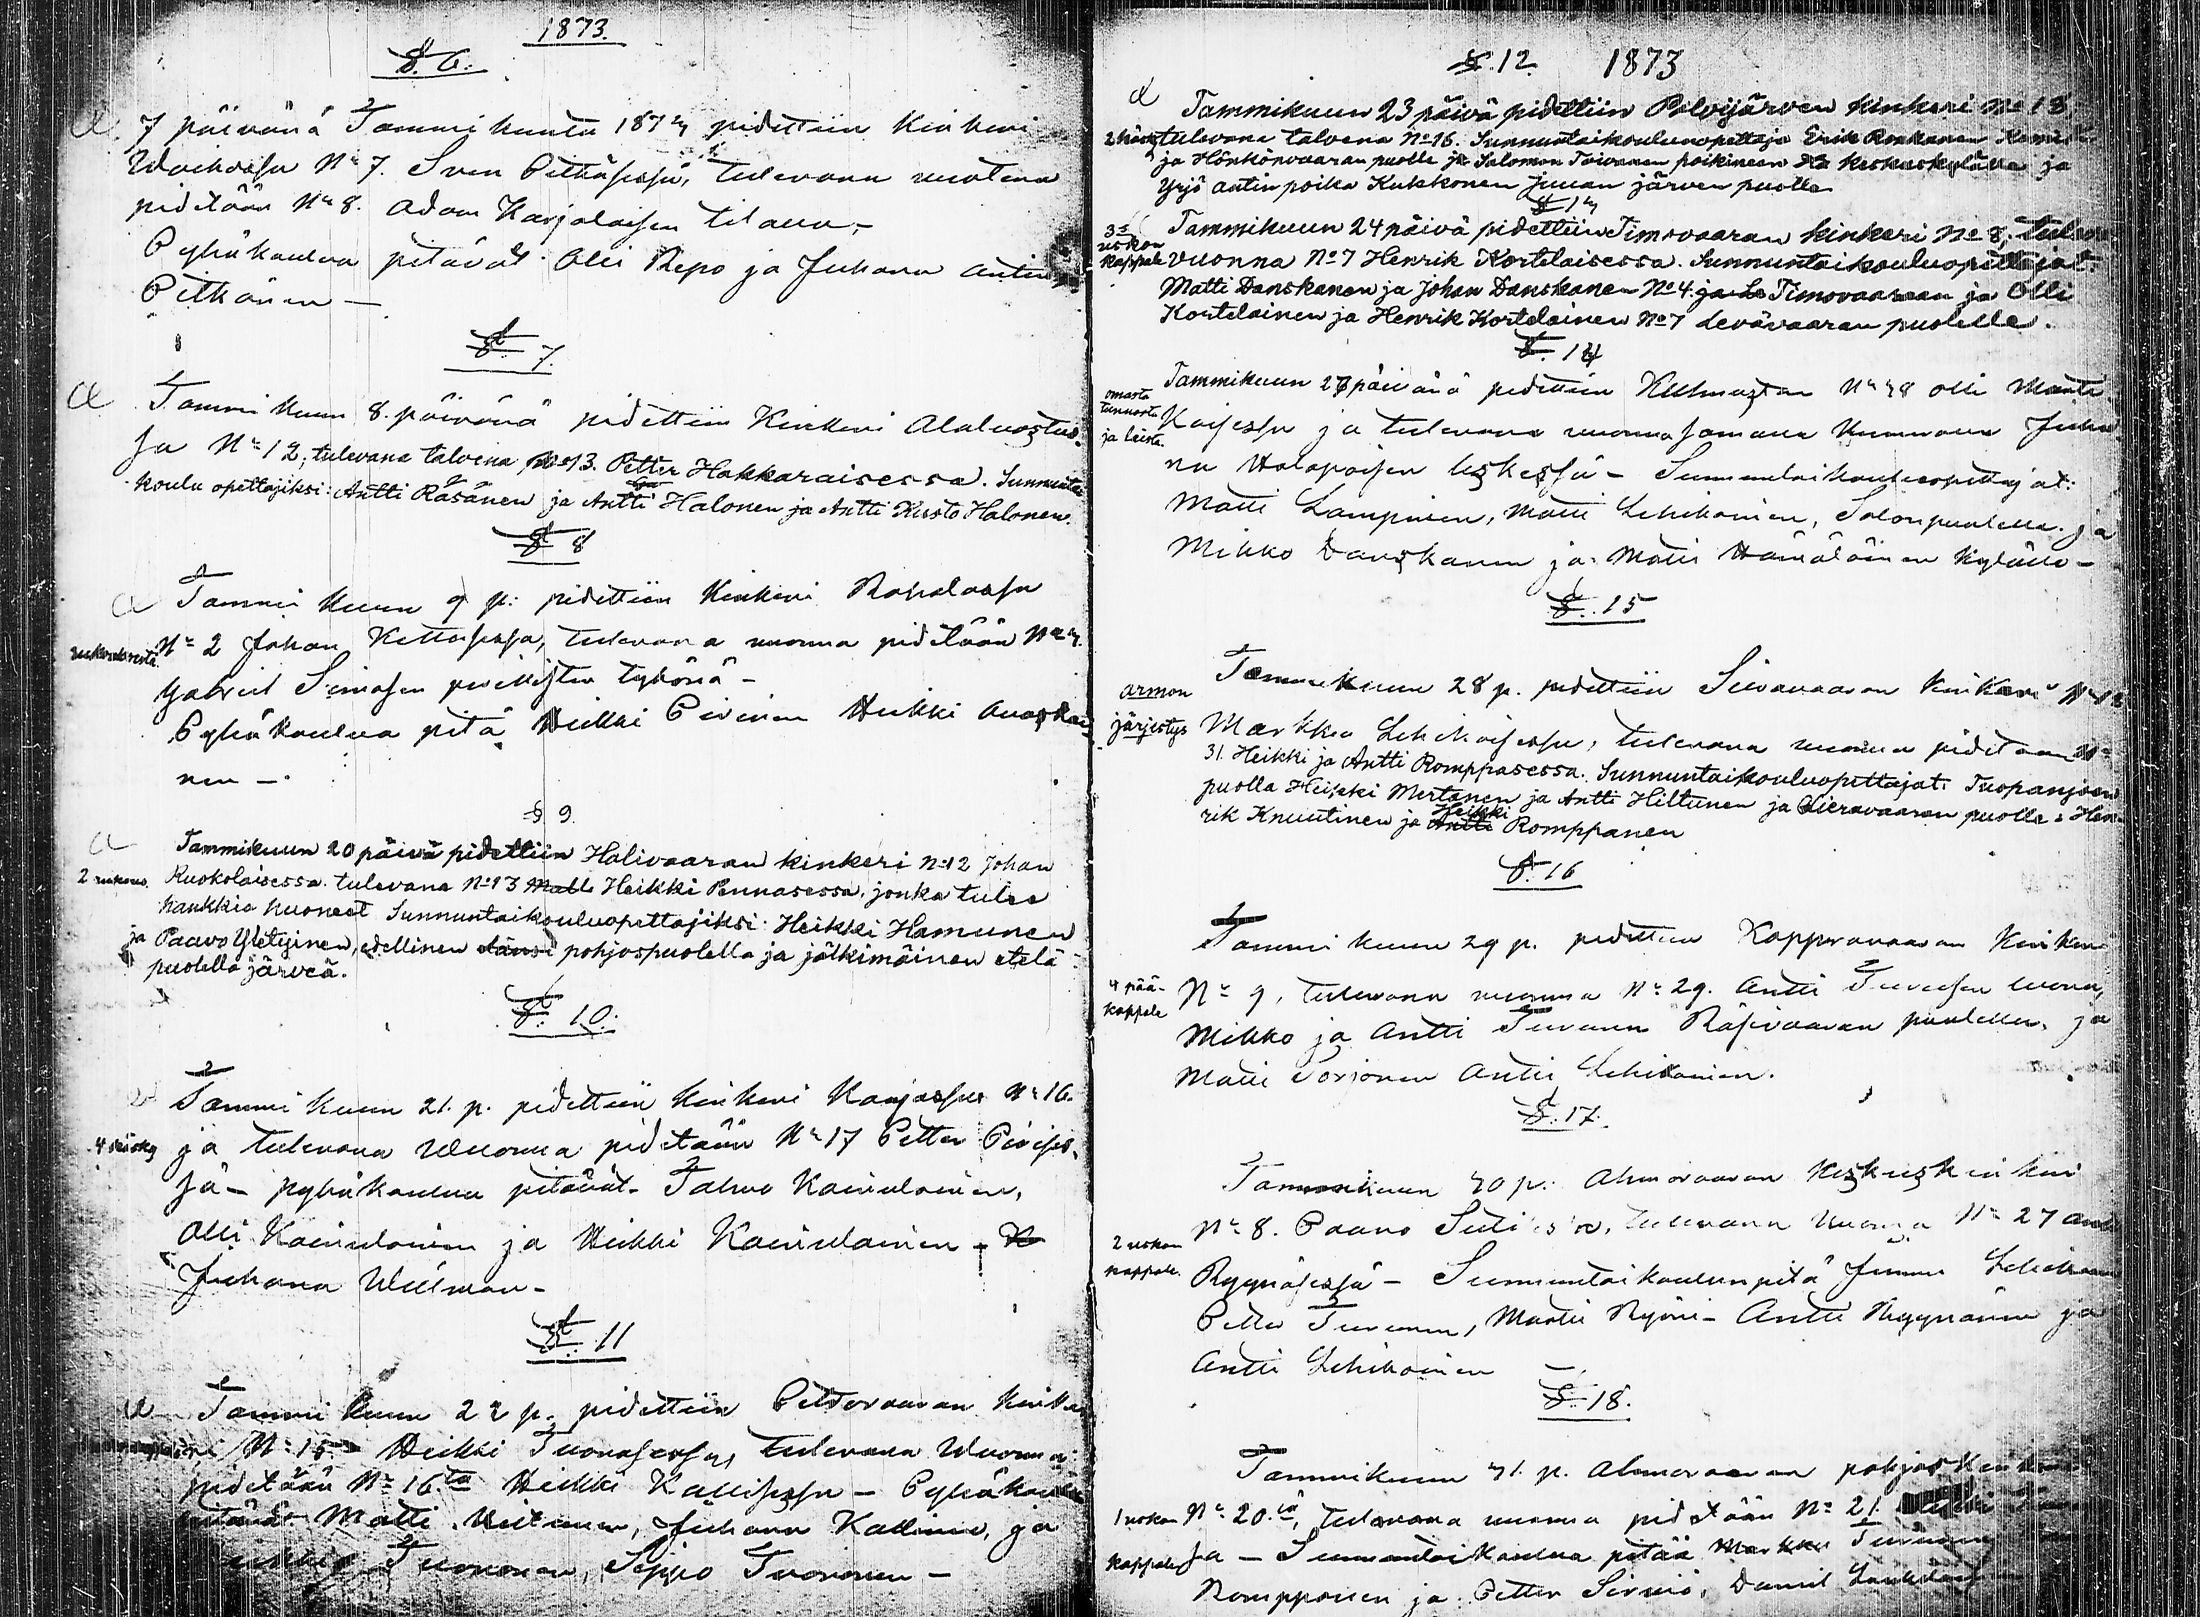 1873.
§ 6.
a 7 päivänä Tammikuuta 1873 pidettiin Kinkeri
Waikossa N:o 7. Sven Pitkäsessä, tulevana vuotena
pidetään N:o 8. Adam Karjalaisen tilalla -
Pyhäkoulua pitävät Olli Repo ja Juhana Antin
Pitkänen -
§ 7.
a Tammikuun 8. päivänä pidettiin Kinkeri Alaluostas
sa N:o 12, tulevana talvena N:o 13. Petter Hakkaraisessa. Sunnuntai
koulu opettajiksi: Antti Räsänen ja Antti Halonen ja Antti Kusto Halonen.
§ 8
a Tammikuun 9 p: pidettiin Kinkeri Rapalassa
N:o 2 Johan Kettusessa, tulevana vuonna pidetään N:o 3.
Gabriel Simosen perillisten tykönä -
Pyhäkoulua pitä Heikki Piirinen Heikki Auvis
nen -
§ 9.
a Tammikuun 20 päivä pidettiin Halivaaran kinkeri No 12 Johan
2 rukous. Ruokolaisessa. tulevana No 13 Matti Heikki Pennasessa, jonka tulee
hankkia huoneet Sunnuntaikouluopettajiksi: Heikki Hamunen
ja Paavo Yletyinen, edellinen länsi pohjospuolella ja jälkimäinen etelä
puolella järveä.
§ 10.
a Tammikuun 21. p. pidettiin kinkeri Kaajassa N:o 16.
4 käsky ja tulevana Wuonna pidetään N:o 17 Petter Piirises
sä - pyhäkoulua pitävät Tahvo Kainulainen,
Olli Kainulainen ja Heikki Kainulainen -
Juhana Willman -
§ 11
a Tammikuun 22 p. pidettiin Petrovaaran Kinke
ri N:o 15 Heikki Tuonosessa, tulevana Wuonna
pidetään N:o 16ta Heikki Kallisessa - Pyhäkoulua
pitävät Matti, Juhana Kallinen, ja
Tuononen, Seppo Tuononen -
§. 12. 1873
a Tammikuun 23 päivä pidettiin Polvijärven kinkeri No 18,
2 käsky tulevana talvena No 16. Sunnuntaikoulunopettaja Erik Ronkanen
ja Hönkönvaaran puolle ja Salomon Toivanen poikineen Keskuskylälle ja
Yrjö Antin poika Kukkonen Juuan järven puolle.
§ 13
3s uskon kappale Tammikuun 24 päivä pidettiin Timovaaran kinkeri No 8, tulev
vuonna No 7 Henrik Kortelaisessa. Sunnuntaikouluopettajat:
Matti Danskanen ja Johan Danskanen No 4. ja Le Timovaaraan ja Olli
Kortelainen ja Henrik Kortelainen No 7 Levävaaran puolella.
§. 14
Tammikuun 27 päivänä pidettiin Kulmustan N:o 38 Olli Martti
omasta tunnosta ja laista Kaisessa ja tulevana vuonna samassa Kunnassa Juha
na Holopaisen leskessä - Sunnuntaikouluopettajat:
Matti Lampinen, Matti Lehikoinen, Salonpuolella ja
Mikko Danskanen ja Matti Hämäläinen kylällä -
§. 15
Tammikuun 28 p. pidettiin Siivavaaran kinkeri N:o
armon järjestys Markku Lehikoisessa, tulevana vuonna pidetään N:o
31. Heikki ja Antti Romppasessa. Sunnuntaikouluopettajat: Tuopanjoen
puolla Heikki Mertanen ja Antti Hiltunen ja Vieravaaran puolla: Hen
rik Knuutinen ja Antti Heikki Romppanen
§. 16
Tammikuun 29 p. pidettiin Kopparavaaran Kinkeri
4 pää-kappale N:o 9, tulevana vuonna N:o 29. Antti Turusen luona,
Mikko ja Antti Turunen Räsävaaran puolella, ja
Matti Torjonen Antti Lehikoinen.
§. 17.
Tammikuun 30 p. Ahmovaaran Keskuskinkeri
2 uskon kappale. N:o 8. Paavo, tulevana vuonna N:o 27 Antti
Ryynäsessä - Sunnuntaikoulun pitä Lehikoinen
Petter Turunen, Martti Ryöni - Antti Ryynänen ja
Antti Lehikoinen -
§. 18.
Tammikuun 31. p. Ahmovaaran pohjoskinkeri
1 uskon kappale N:o 20:tä, tulevana vuonna pidetään N:o 21
sa - Sunnuntaikoulua pitää Markku Turunen
Romppanen ja Petter Sirviö, Daniel